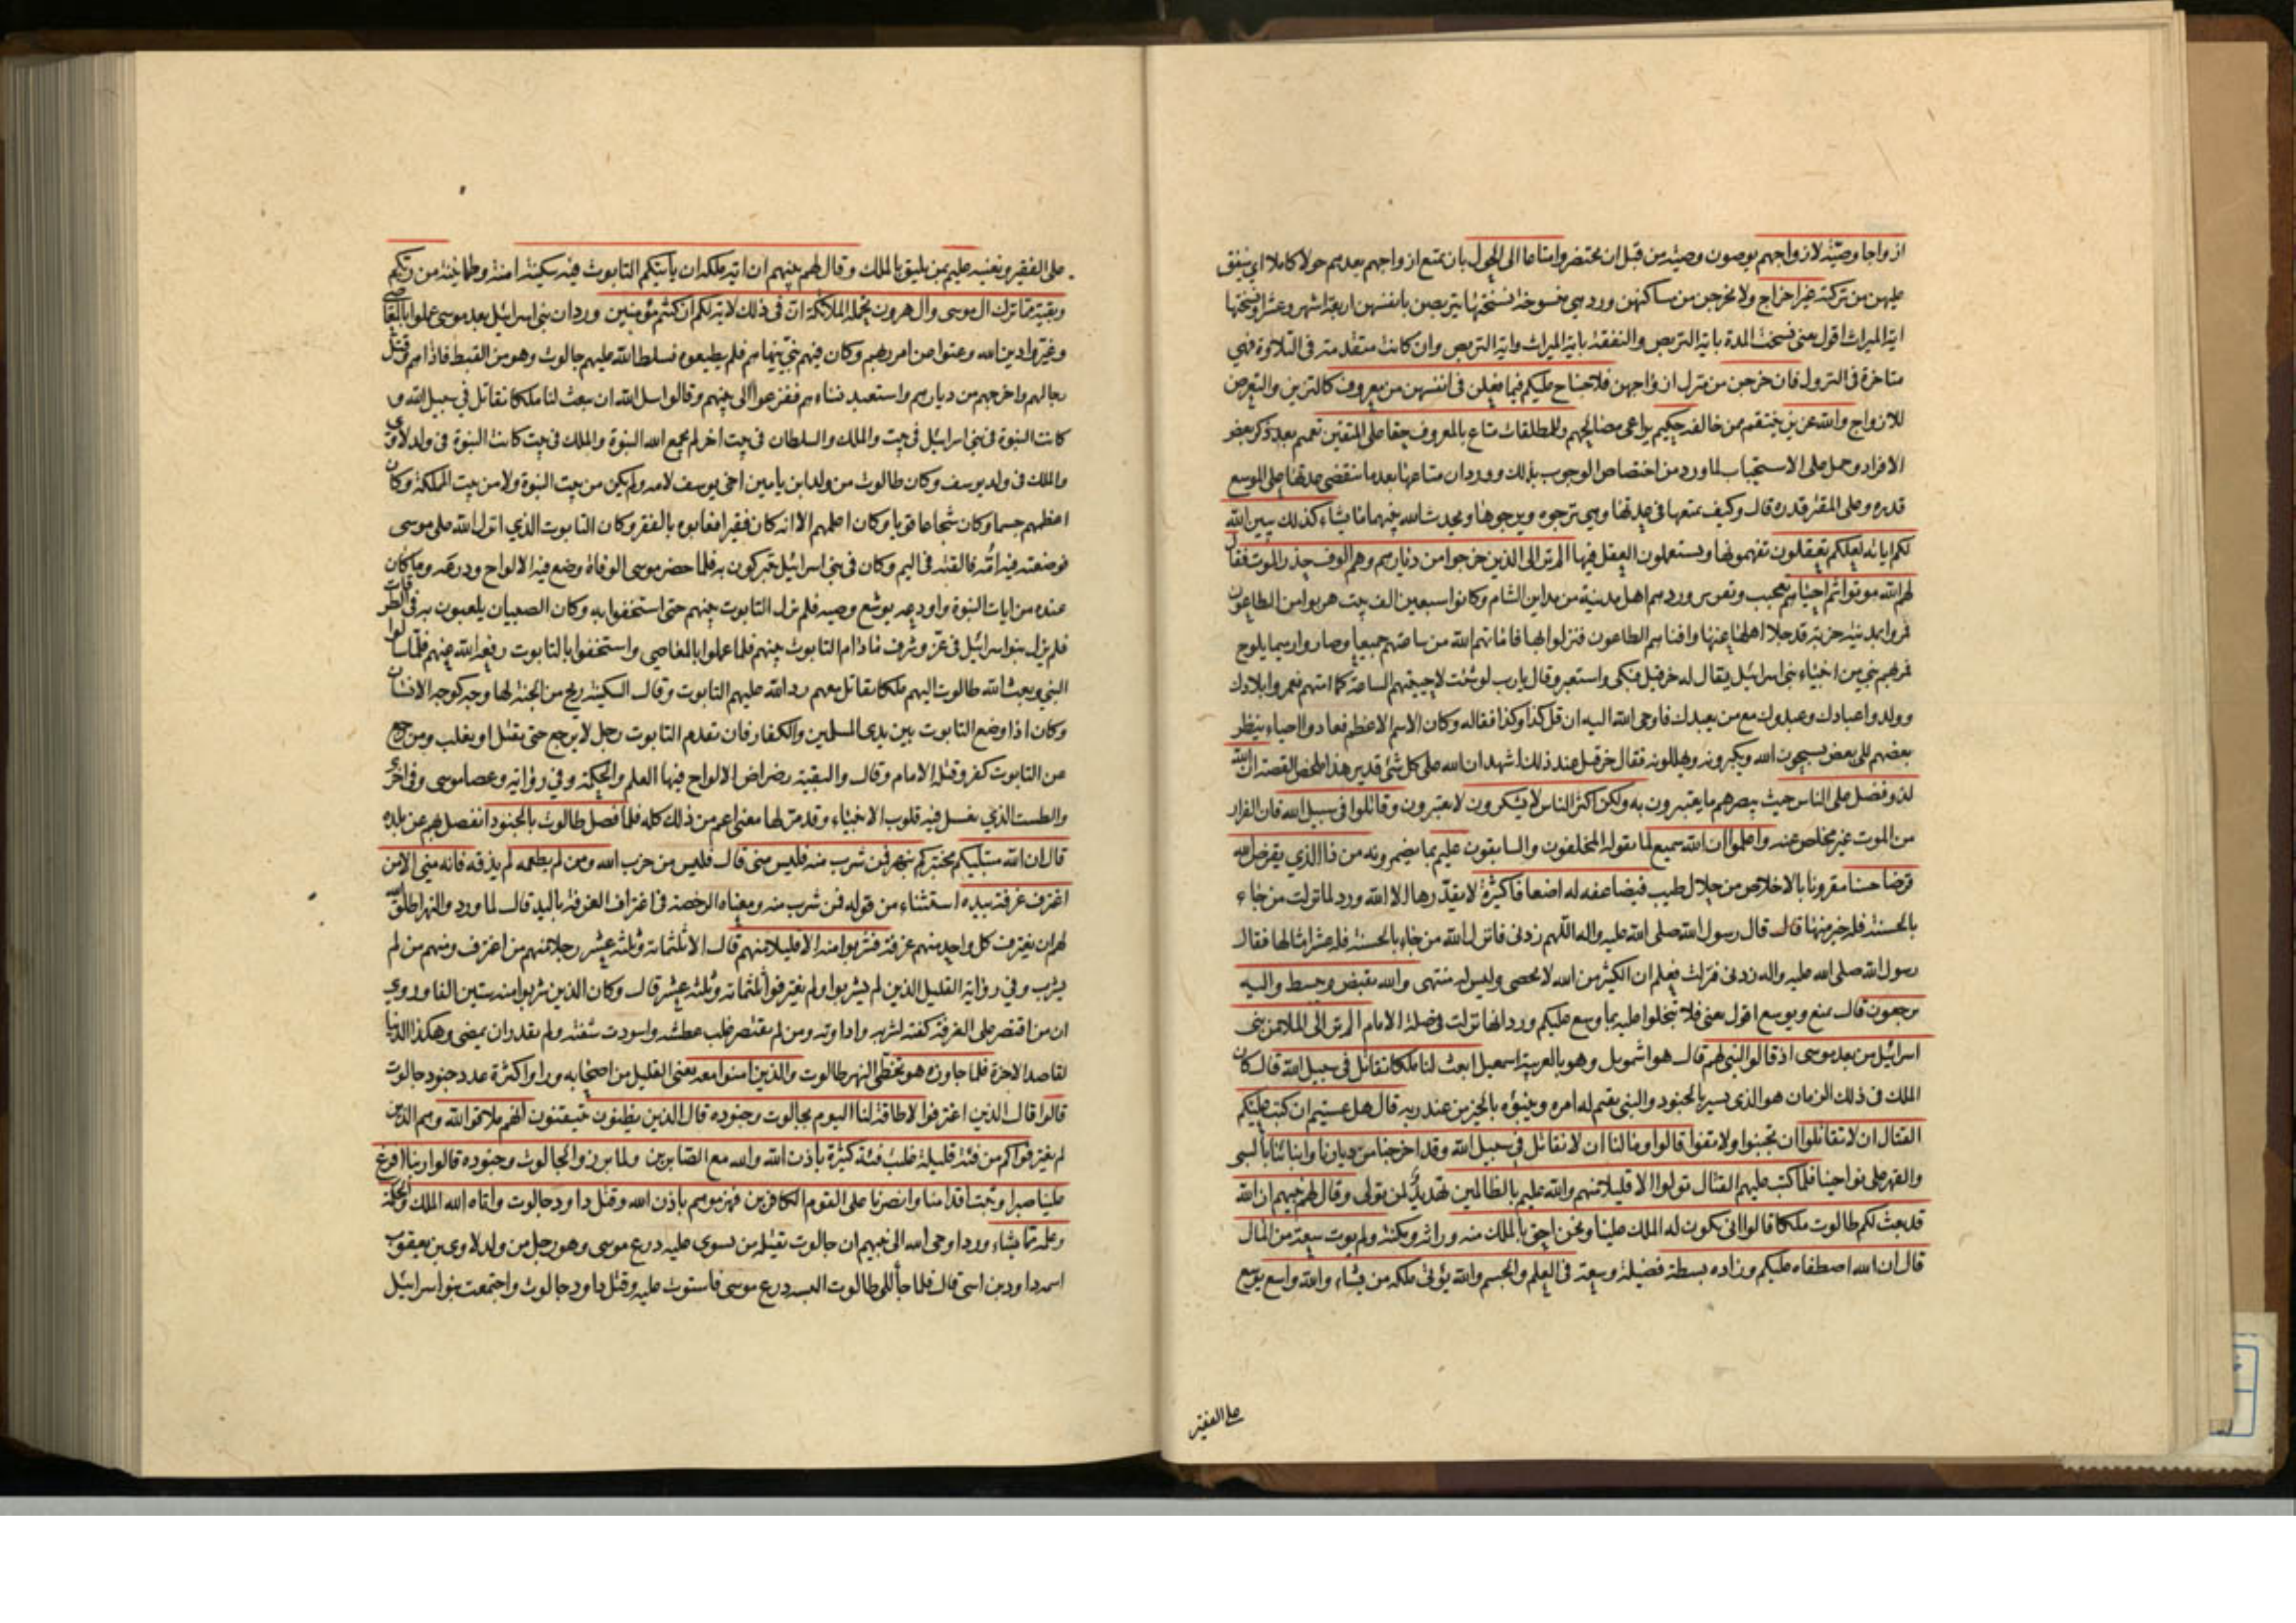 ازواجا وصيّة لازواجهم يوصون وصية من قبل ان يحتضروا متاعا الى الحول بان يمتع ازواجهم بعدهم حولا كاملا اي ينفق
عليهن من تركته غير اخراج ولا يخرجن من مساكنهن ورد هي منسوخة نسختها يتربصن بانفسهن اربعة اشهر وعشرا ونسختها
اية الميراث اقول يعني نسخت المدة باية التربص والنفقة باية الميراث واية التربص وان كانت متقدمة في التلاوة فهي
متاخرة في النزول فان خرجن من منزل ازواجهن فلا جناح عليكم فيما فعلن في انفسهن من معروف كالتزين والتعرض
للازواج والله عزيز ينتقم ممن خالفه حكيم يراعي مصالحهم وللمطلقات متاع بالمعروف حقا على المتقين تعميم بعد ذكر بعض
الافراد وحمل على الاستحباب لما ورد من اختصاص الوجوب بذلك وورد ان متاعها بعد ما تنقضي عدتها على الموسع
قدره وعلى المقتر قدره قال وكيف يمتعها في عدتها وهي ترجوه ويرجوها ويحدث الله بينهما ما يشاء كذلك يبين الله
لكم اياته لعلكم تعقلون تفهمونها وتستعملون العقل فيها الم تر الى الذين خرجوا من ديارهم وهم الوف حذر الموت فقال
لهم الله موتوا ثم احياهم ورد هم اهل مدينة من مداين الشام وكانوا سبعين الف بيت هربوا من الطاعون
فمروا بمدينة خربة قد جلا اهلها عنها وافناهم الطاعون فنزلوا بها فاماتهم الله من ساعتهم جميعا وصاروا رميما يلوح
فمر بهم نبي من انبياء بني اسرائيل يقال له حزقيل فبكى واستعبر وقال يا رب لو شئت لاحييتهم الساعة كما امتهم فعمروا بلادك
وولدوا عبادك وعبدوك مع من يعبدك فاوحى الله اليه ان قل كذا وكذا فقاله وكان الاسم الاعظم فعادوا احياء ينظر
بعضهم الى بعض يسبحون الله ويكبرونه ويهللونه فقال حزقيل عند ذلك اشهد ان الله على كل شئ قدير هذا ملخص القصة ان الله
لذو فضل على الناس حيث يبصرهم ما يعتبرون به ولكن اكثر الناس لا يشكرون لا يعتبرون وقاتلوا في سبيل الله فان الفرار
من الموت غير مخلص عنه واعلموا ان الله سميع لما يقوله المخلفون والسابقون عليم بما يضمرونه من ذا الذي يقرض الله
قرضا حسنا مقرونا بالاخلاص من حلال طيب فيضاعفه له اضعافا كثيرة لا يقدّرها الا الله ورد لما نزلت من جاء
بالحسنة فله خير منها قال رسول الله صلى الله عليه واله اللهم زدني فانزل الله من جاء بالحسنة فله عشر امثالها فقال
رسول الله صلى الله عليه واله زدني فنزلت فعلم ان الكثير من الله لا يحصى وليس له منتهى والله يقبض ويبسط واليه
ترجعون قال يمنع ويوسع اقول يعني فلا تبخلوا عليه بما وسع عليكم ورد انها نزلت في صلة الامام الم تر الى الملا من بني
اسرائيل من بعد موسى اذ قالوا لنبي لهم قال هو اشمويل وهو بالعربية اسمعيل ابعث لنا ملكا نقاتل في سبيل الله قال كان
الملك في ذلك الزمان هو الذي يسير بالجنود والنبي يقيم له امره وينبؤه بالخبر من عند ربه قال هل عسيتم ان كتب عليكم
القتال ان لا تقاتلوا ان تجبنوا ولا تفوا قالوا وما لنا ان لا نقاتل في سبيل الله وقد اخرجنا من ديارنا وابنائنا بالسبي
والقهر على نواحينا فلما كتب عليهم القتال تولوا الا قليلا منهم والله عليم بالظالمين تهديد لمن تولى وقال لهم نبيهم ان الله
قد بعث لكم طالوت ملكا قالوا انى يكون له الملك علينا ونحن احق بالملك منه وراثة ومكنة ولم يؤت سعة من المال
قال ان الله اصطفاه عليكم وزاده بسطة فضيلة وسعة في العلم والجسم والله يؤتي ملكه من يشاء والله واسع يوسع
على الفقير
على الفقير ويغنيه عليم بمن يليق بالملك وقال لهم نبيهم ان اية ملكه ان يأتيكم التابوت فيه سكينة امنة وطمانينة من ربكم
وبقية مما ترك ال موسى وال هرون تحمله الملائكة ان في ذلك لاية لكم ان كنتم مؤمنين ورد ان بني اسرائيل بعد موسى عملوا بالمعاصي
وغيّروا دين الله وعتوا عن امر ربهم وكان فيهم نبي ينهاهم فلم يطيعوه فسلط الله عليهم جالوت وهو من القبط فاذاهم وقتل
رجالهم واخرجهم من ديارهم واستعبد نساءهم ففزعوا الى نبيهم وقالوا سل الله ان يبعث لنا ملكا نقاتل في سبيل الله و
كانت النبوة في بني اسرائيل في بيت والملك والسلطان في بيت اخر لم يجمع الله النبوة والملك في بيت كانت النبوة في ولد لاوي
والملك في ولد يوسف وكان طالوت من ولد ابن يامين اخي يوسف لامه ولم يكن من بيت النبوة ولا من بيت المملكة وكان
اعظمهم جسما وكان شجاعا قويا وكان اعلمهم الا انه كان فقيرا فعابوه بالفقر وكان التابوت الذي انزل الله على موسى
فوضعته فيه امّه فالقته في اليم وكان في بني اسرائيل يتبركون به فلما حضر موسى الوفاة وضع فيه الالواح ودرعه وما كان
عنده من ايات النبوة واودعه يوشع وصيه فلم يزل التابوت بينهم حتى استخفوا به وكان الصبيان يلعبون به في الطرقات
فلم يزل بنو اسرائيل في عز وشرف ما دام التابوت بينهم فلما عملوا بالمعاصي واستخفوا بالتابوت رفعه الله عنهم فلما سالوا
النبي وبعث الله طالوت اليهم ملكا يقاتل معهم رد الله عليهم التابوت وقال السكينة ريح من الجنة لها وجه كوجه الانسان
وكان اذا وضع التابوت بين يدي المسلمين والكفار فان تقدم التابوت رجل لا يرجع حتى يقتل او يغلب ومن رجع
عن التابوت كفر وقتله الامام وقال والبقية رضراض الالواح فيها العلم والحكمة وفي رواية وعصا موسى وفي اخرى
والطست الذي يغسل فيه قلوب الانبياء وقد مر لها معنى اعم من ذلك كله فلما فصل طالوت بالجنود انفصل بهم عن بلده
قال ان الله مبتليكم مختبركم بنهر فمن شرب منه فليس مني قال فليس من حزب الله ومن لم يطعمه لم يذقه فانه مني الا من
اغترف غرفة بيده استثناء من قوله فمن شرب منه ومعناه الرخصة في اغتراف الغرفة باليد قال لما ورد والنهر اطلق الله
لهم ان يغترف كل واحد منهم غرفة فشربوا منه الا قليلا منهم قال الا ثلثمائة وثلثة عشر رجلا منهم من اغترف ومنهم من لم
يشرب وفي رواية القليل الذين لم يشربوا ولم يغترفوا ثلثمائة وثلثة عشر قال وكان الذين شربوا منه ستين الفا وروي
ان من اقتصر على الغرفة كفته لشربه واداوته ومن لم يقتصر غلب عطشه واسودت شفته ولم يقدر ان يمضي وهكذا الدنيا
لقاصد الاخرة فلما جاوزه هو تخطى النهر طالوت والذين امنوا معه يعني القليل من اصحابه وراوا كثرة عدد جنود جالوت
قالوا قال الذين اغترفوا لا طاقة لنا اليوم بجالوت وجنوده قال الذين يظنون يتيقنون انهم ملاقوا الله وهم الذين
لم يغترفوا كم من فئة قليلة غلبت فئة كثيرة باذن الله والله مع الصابرين ولما برزوا لجالوت وجنوده قالوا ربنا افرغ
علينا صبرا وثبت اقدامنا وانصرنا على القوم الكافرين فهزموهم باذن الله وقتل داود جالوت واتاه الله الملك والحكمة
وعلمه مما يشاء ورد اوحى الله الى نبيهم ان جالوت يقتله من يسوي عليه درع موسى وهو رجل من ولد لاوي بن يعقوب
اسمه داود بن اسى قال فلما جاء الى طالوت البسه درع موسى فاستوت عليه وقتل داود جالوت واجتمعت بنو اسرائيل